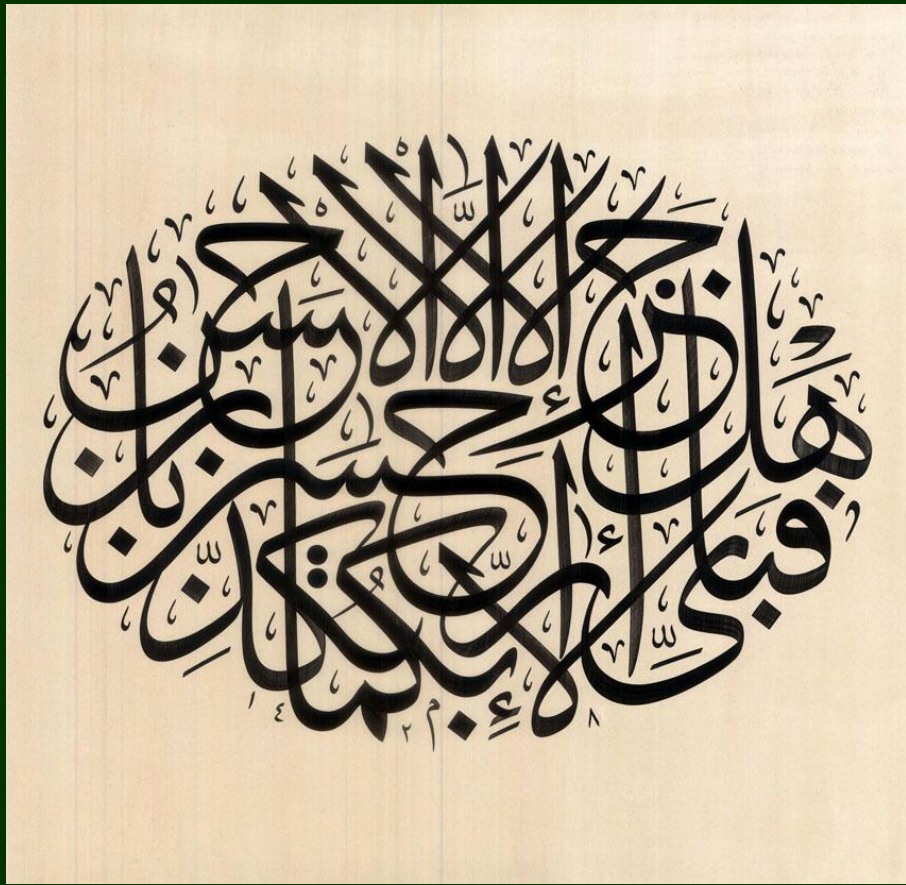 هَلْ جَزَاءُ الْإِحْسَانِ إِلَّا الْإِحْسَانُ
فَبِأَيِّ آلَاءِ رَبِّكُمَا تُكَذِّبَانِ